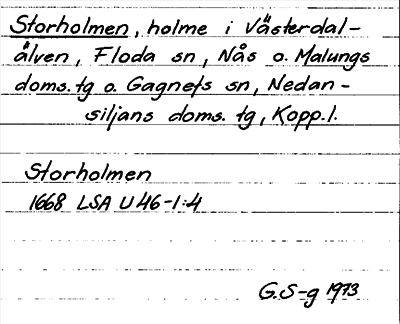 Storholmen, holme i Västerdal-
älven, Floda sn, Nås o. Malungs
doms. tg o. Gagnefs sn, Nedan-
siljans doms. tg, Kopp. l.
Storholmen
1668 LSA U46-1:4
G.S-g 1973